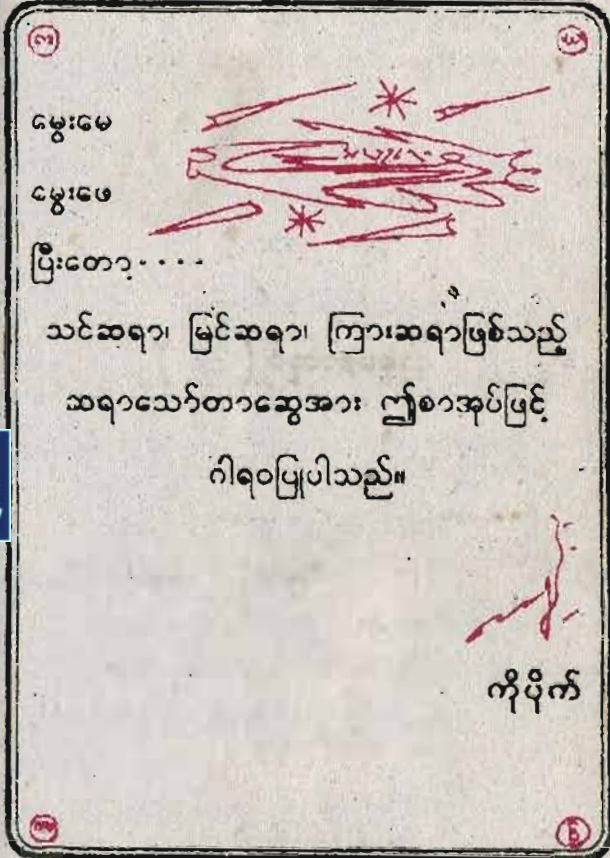 မွေးမေ
မွေးဖေ
ပြီးတော့····
သင်ဆရာ၊ မြင်ဆရာ၊ ကြားဆရာဖြစ်သည့်
ဆရာသော်တာဆွေအား ဤစာအုပ်ဖြင့်
ဂါရဝပြုပါသည်။
ကိုပိုက်